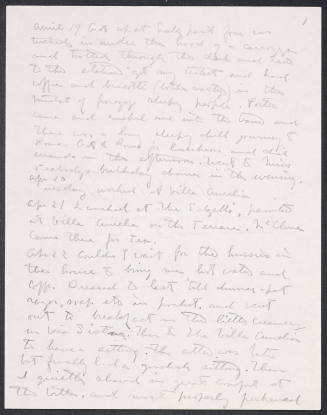 1
April 19 Got up at half past four was
tucked in under the hood of a carrozza
and trotted through the dark and rain
to the station, got my tickets and had
coffee and brioche (both wasted) in the
midst of foreign sleepy people. Porter
came and me into the and
There was a long sleepy dull journey to
Rome. Got to Rome for luncheon and did
errands in the afternoon. Went to Miss
birthday dinner in the evening.
Apr 20
Tuesday worked at Villa Aurelia.
Apr 21 Lunched at the , painted
at Villa Aurelia on the Terrace. McClure
came there for tea.
Apr 22 Couldn't wait for the in
the house to bring me hot water and
coffee. Dressed to last till dinner - put
razor, soap etc in pocket, and went
out to breakfast in the little creamery
in Via Sistina. Then to the Villa Aurelia
to have a sitting. The sitter was late
but finally had a good sitting. Then
I quietly shaved in great comfort at
the Villa, and most properly perfumed